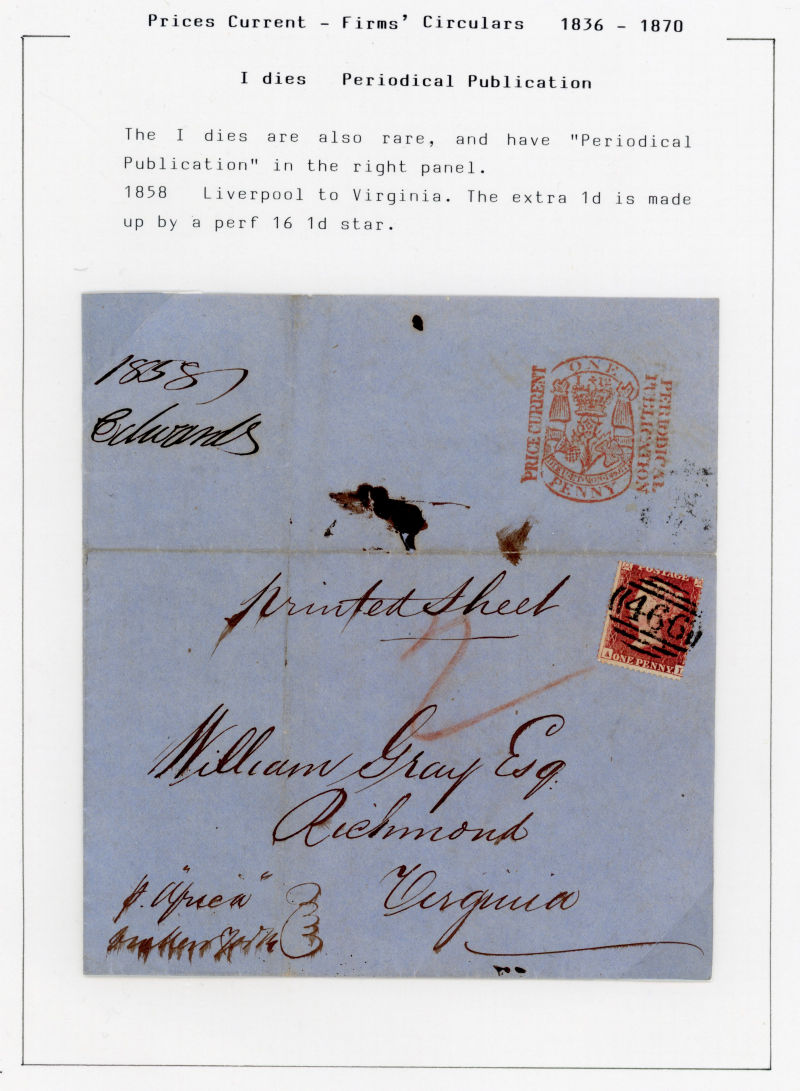 Prices Current - Firms' Circulars 1836 - 1870
I dies Periodical Publication
The I dies are also rare, and have "Periodical
Publication" in the right panel.
1858 Liverpool to Virginia. The extra 1d is made
up by a perf 16 1d star.
1858
Edwards
PRICE CURRENT
ONE
PENNY
PERIODICAL
PUBLICATION
printed sheet
POSTAGE
466
A ONE PENNY I
2
William Gray Esq
Richmond
Virginia
p. "Africa"